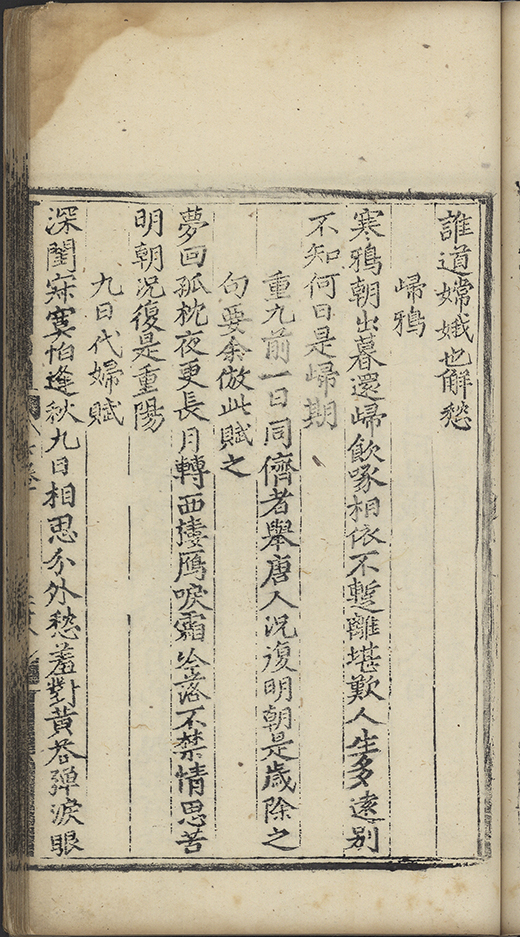 誰道嫦娥也解愁
歸鴉
寒鴉朝出暮還歸飮啄相依不蹔離堪歎人生多遠别
不知何日是歸期
重九前一日同儕者舉唐人況復明朝是歲除之
句要余倣此賦之
夢回孤枕夜更長月轉西樓鴈唳霜冷落不禁情思苦
明朝況復是重陽
九日代婦賦
深閨寂寞怕逢秋九日相思分外愁羞對黃花彈淚眼